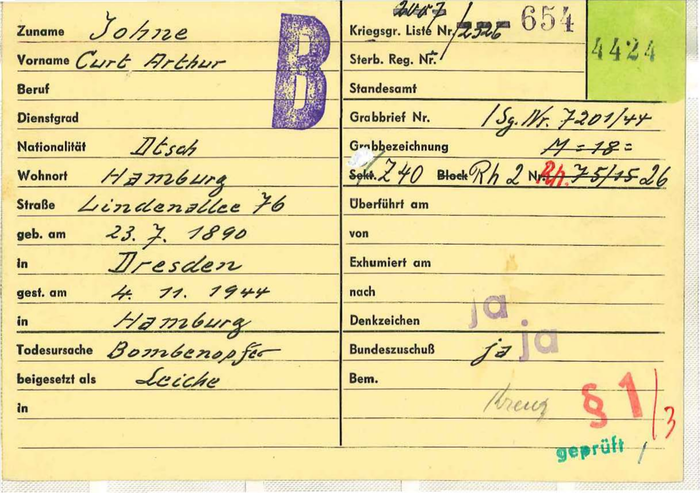 Zuname Johne
Vorname Curt Arthur
Beruf
Dienstgrad
Nationalität Dtsch
Wohnort Hamburg
Straße Lindenallee 76
geb. am 23. 7. 1890
in Dresden
gest. am 4. 11. 1944
in Hamburg
Todesursache Bombenopfer
beigesetzt als Leiche
in
B
2007
Kriegsgr. Liste Nr. /2326 654
4424
Sterb. Reg. Nr.
Standesamt
Grabbrief Nr. /Sg. Nr. 7201/44
Grabbezeichnung M = 18 =
Sekt. Z 40 Block Rh 2 Nr. Rh. 75/15 26
Überführt am
von
Exhumiert am
nach
ja
Denkzeichen
ja
Bundeszuschuß ja
Bem.
Kreuz
§ 1/3
geprüft